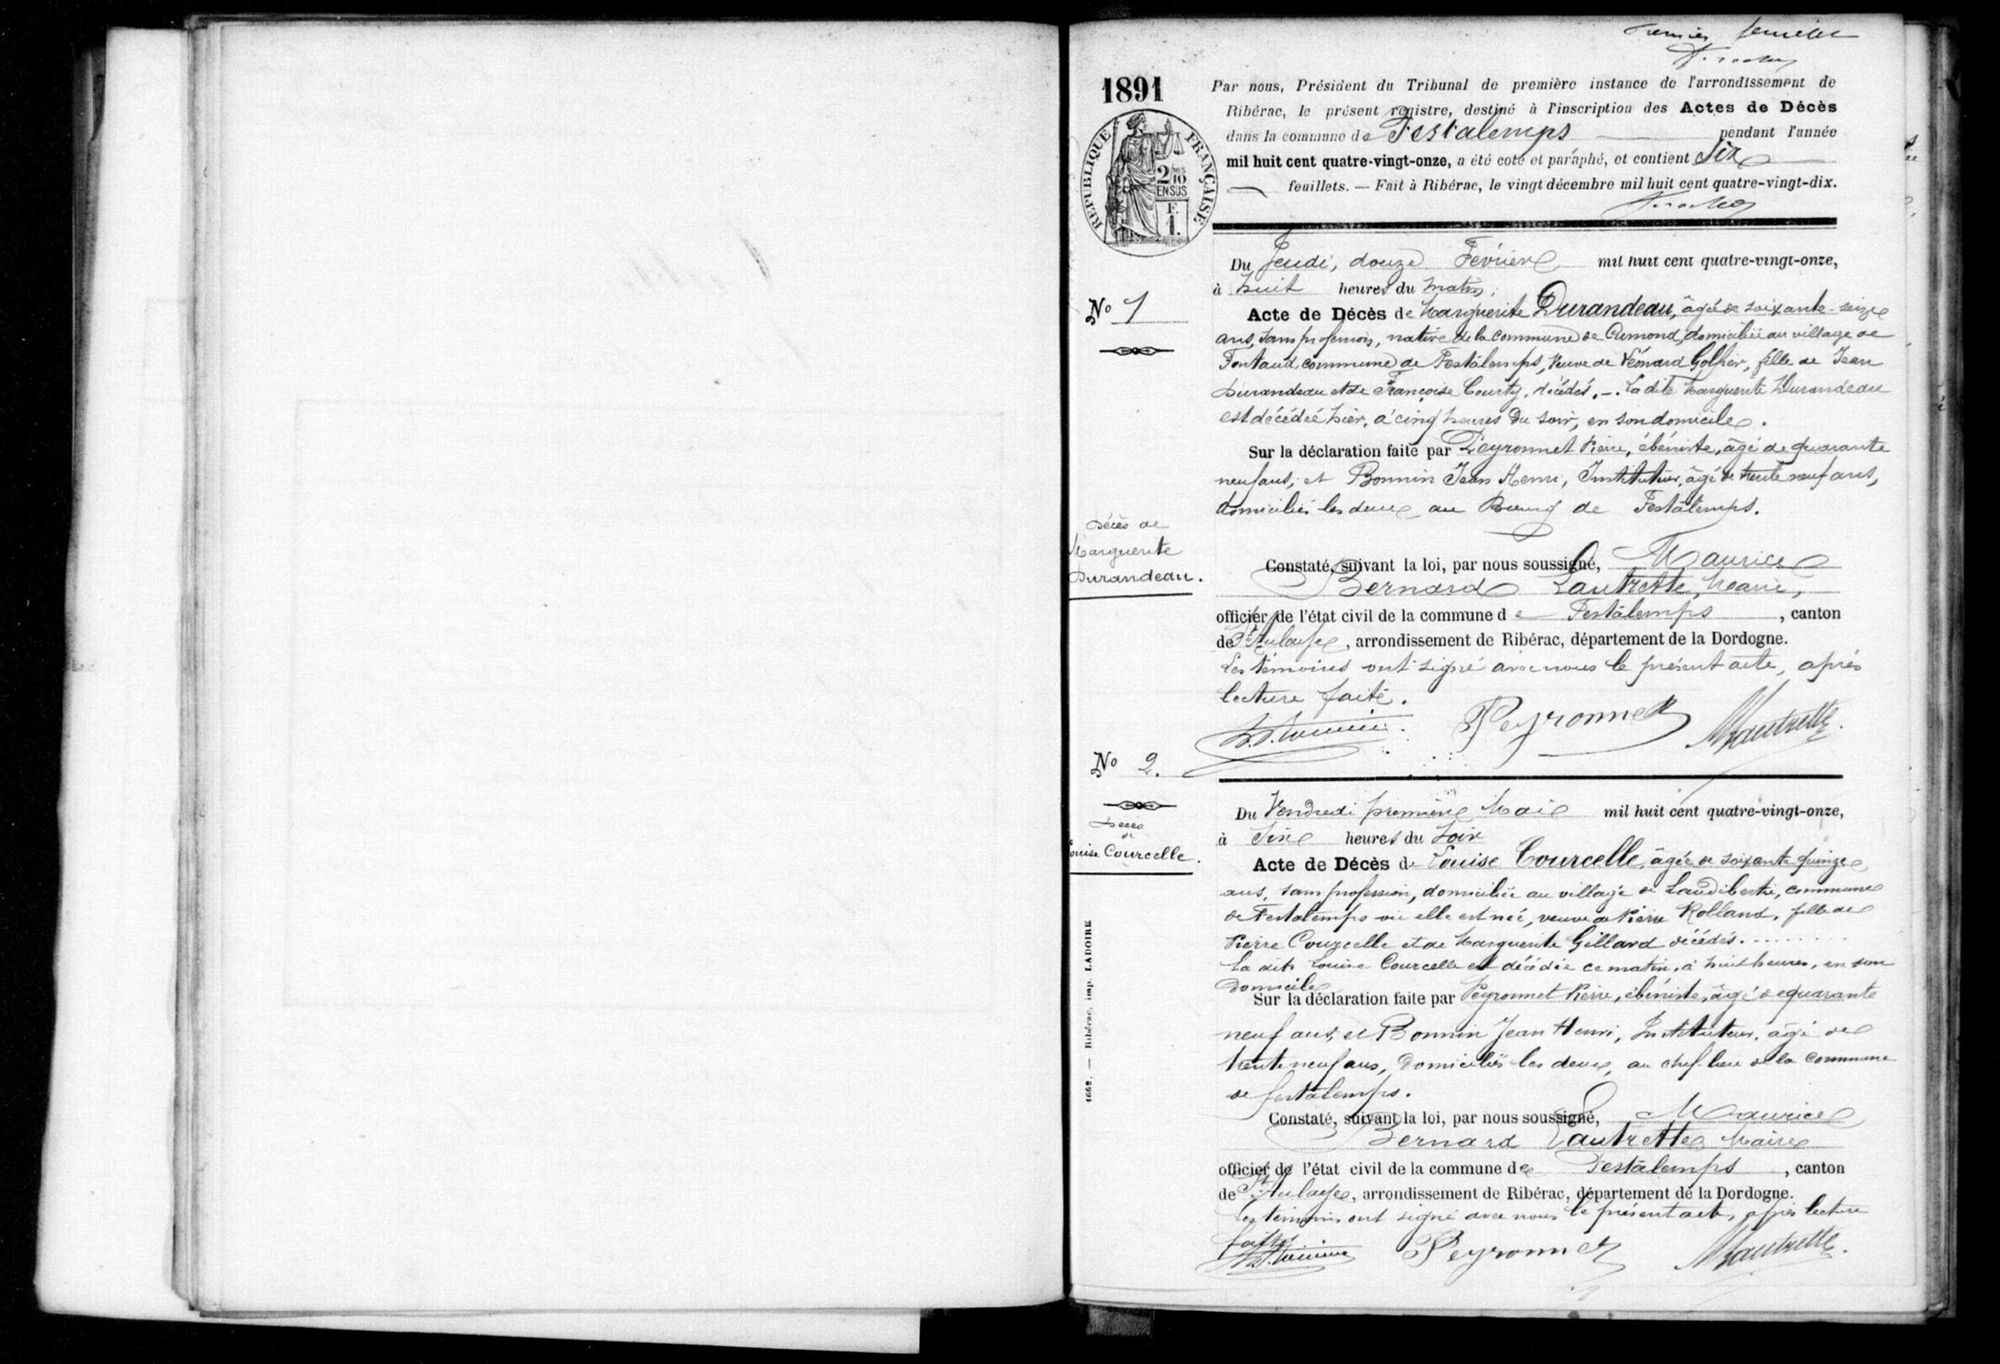 Premier feuillet
1891
Par nous, Président du Tribunal de première instance de l'arrondissement de
Ribérac, le présent registre, destiné à l'inscription des Actes de Décès
dans la commune de Festalemps pendant l'année
mil huit cent quatre-vingt-onze, a été coté et paraphé, et contient Six
feuillets. — Fait à Ribérac, le vingt décembre mil huit cent quatre-vingt-dix.
RÉPUBLIQUE FRANÇAISE
2/10
EN SUS
F.
1.
Du Jeudi, douze Février mil huit cent quatre-vingt-onze,
à huit heures du matin,
No 1
Acte de Décès de Marguerite Durandeau, âgée de soixante-seize
ans, sans profession, native de la commune de Cumond, domiciliée au village de
Fontaud, commune de Festalemps, Veuve de Léonard Golfier, fille de Jean
Durandeau et de Françoise Courty, décédés. — La dite Marguerite Durandeau
est décédée hier, à cinq heures du soir, en son domicile.
Sur la déclaration faite par Peyronnet Pierre, ébéniste, âgé de quarante
neuf ans, et Bonnin Jean Henri, Instituteur, âgé de trente neuf ans,
domiciliés les deux au Bourg de Festalemps.
Décès de
Marguerite
Durandeau.
Constaté, suivant la loi, par nous soussigné, Maurice
Bernard Lautrette, Maire,
officier de l'état civil de la commune de Festalemps, canton
de St Aulaye, arrondissement de Ribérac, département de la Dordogne.
Les témoins ont signé avec nous le présent acte, après
lecture faite.
Peyronnet MLautrette
No 2.
Du Vendredi premier Mai mil huit cent quatre-vingt-onze,
à Six heures du Soir
Décès
de
Louise Courcelle.
Acte de Décès de Louise Courcelle, âgée de soixante quinze
ans, sans profession, domiciliée au village de Laudibertie, commune
de Festalemps où elle est née, veuve de Pierre Rolland, fille de
Pierre Courcelle et de Marguerite Gillard décédés.........
La dite Louise Courcelle est décédée ce matin, à huit heures, en son
domicile
Sur la déclaration faite par Peyronnet Pierre, ébéniste, âgé de quarante
neuf ans, et Bonnin Jean Henri, Instituteur, âgé de
trente neuf ans, domiciliés les deux, au chef-lieu de la commune
de festalemps.
Constaté, suivant la loi, par nous soussigné, Maurice
Bernard Lautrette Maire
officier de l'état civil de la commune de Festalemps, canton
de St Aulaye, arrondissement de Ribérac, département de la Dordogne.
Les témoins ont signé avec nous le présent acte, après lecture
faite
Peyronnet MLautrette.
1662. — Ribérac, imp. LADOIRE